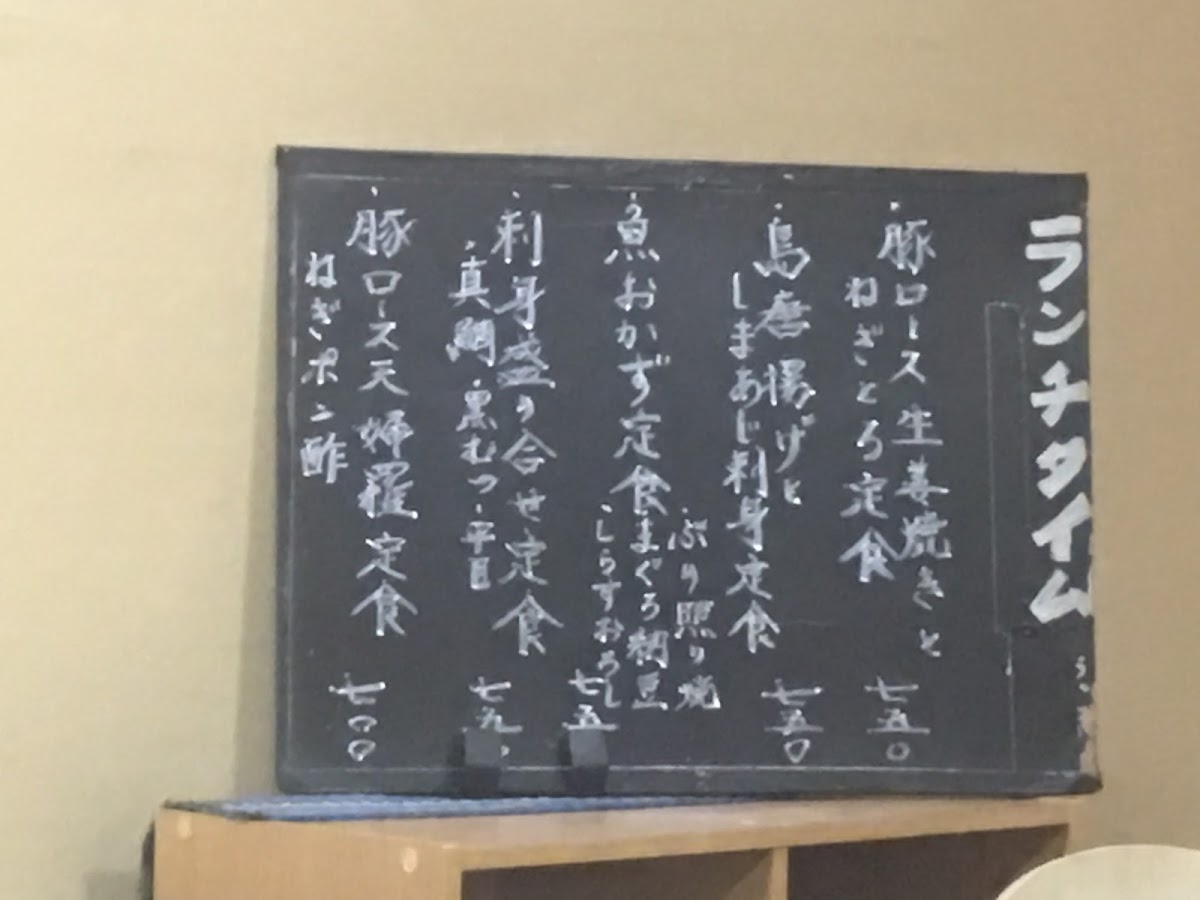 ランチタイム
・豚ロース生姜焼きと
ねぎとろ定食
七五〇
・鳥唐揚げと
しまあじ刺身定食
七五〇
・魚おかず定食
・ぶり照り焼
・まぐろ納豆
・しらすおろし
七五
・刺身盛り合せ定食
・真鯛・黒むつ・平目
七九〇
・豚ロース天婦羅定食
ねぎポン酢
七〇〇